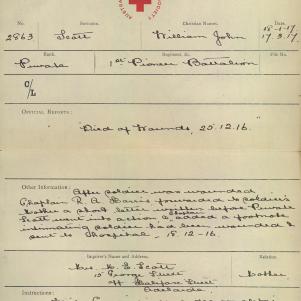 No.
Surname.
Christian Names.
Date.
2863
Scott
William John
18.1.17
17.3.17
Rank.
Regiment, &c.
File No.
Private
1st Pioneer Battalion
C/L
OFFICIAL REPORTS:
"Died of Wounds, 20.12.16."
Other Information: After soldier was wounded
Chaplain R. A. forwarded to soldier's
mother a short letter written before Private
Scott went into action & Chaplain added a footnote
intimating soldier had been wounded &
sent to Hospital, 18-12-16.
Inquirer's Name and Address.
Relation
Mrs. Scott
Mother
George Street
Adelaide
Instructions: